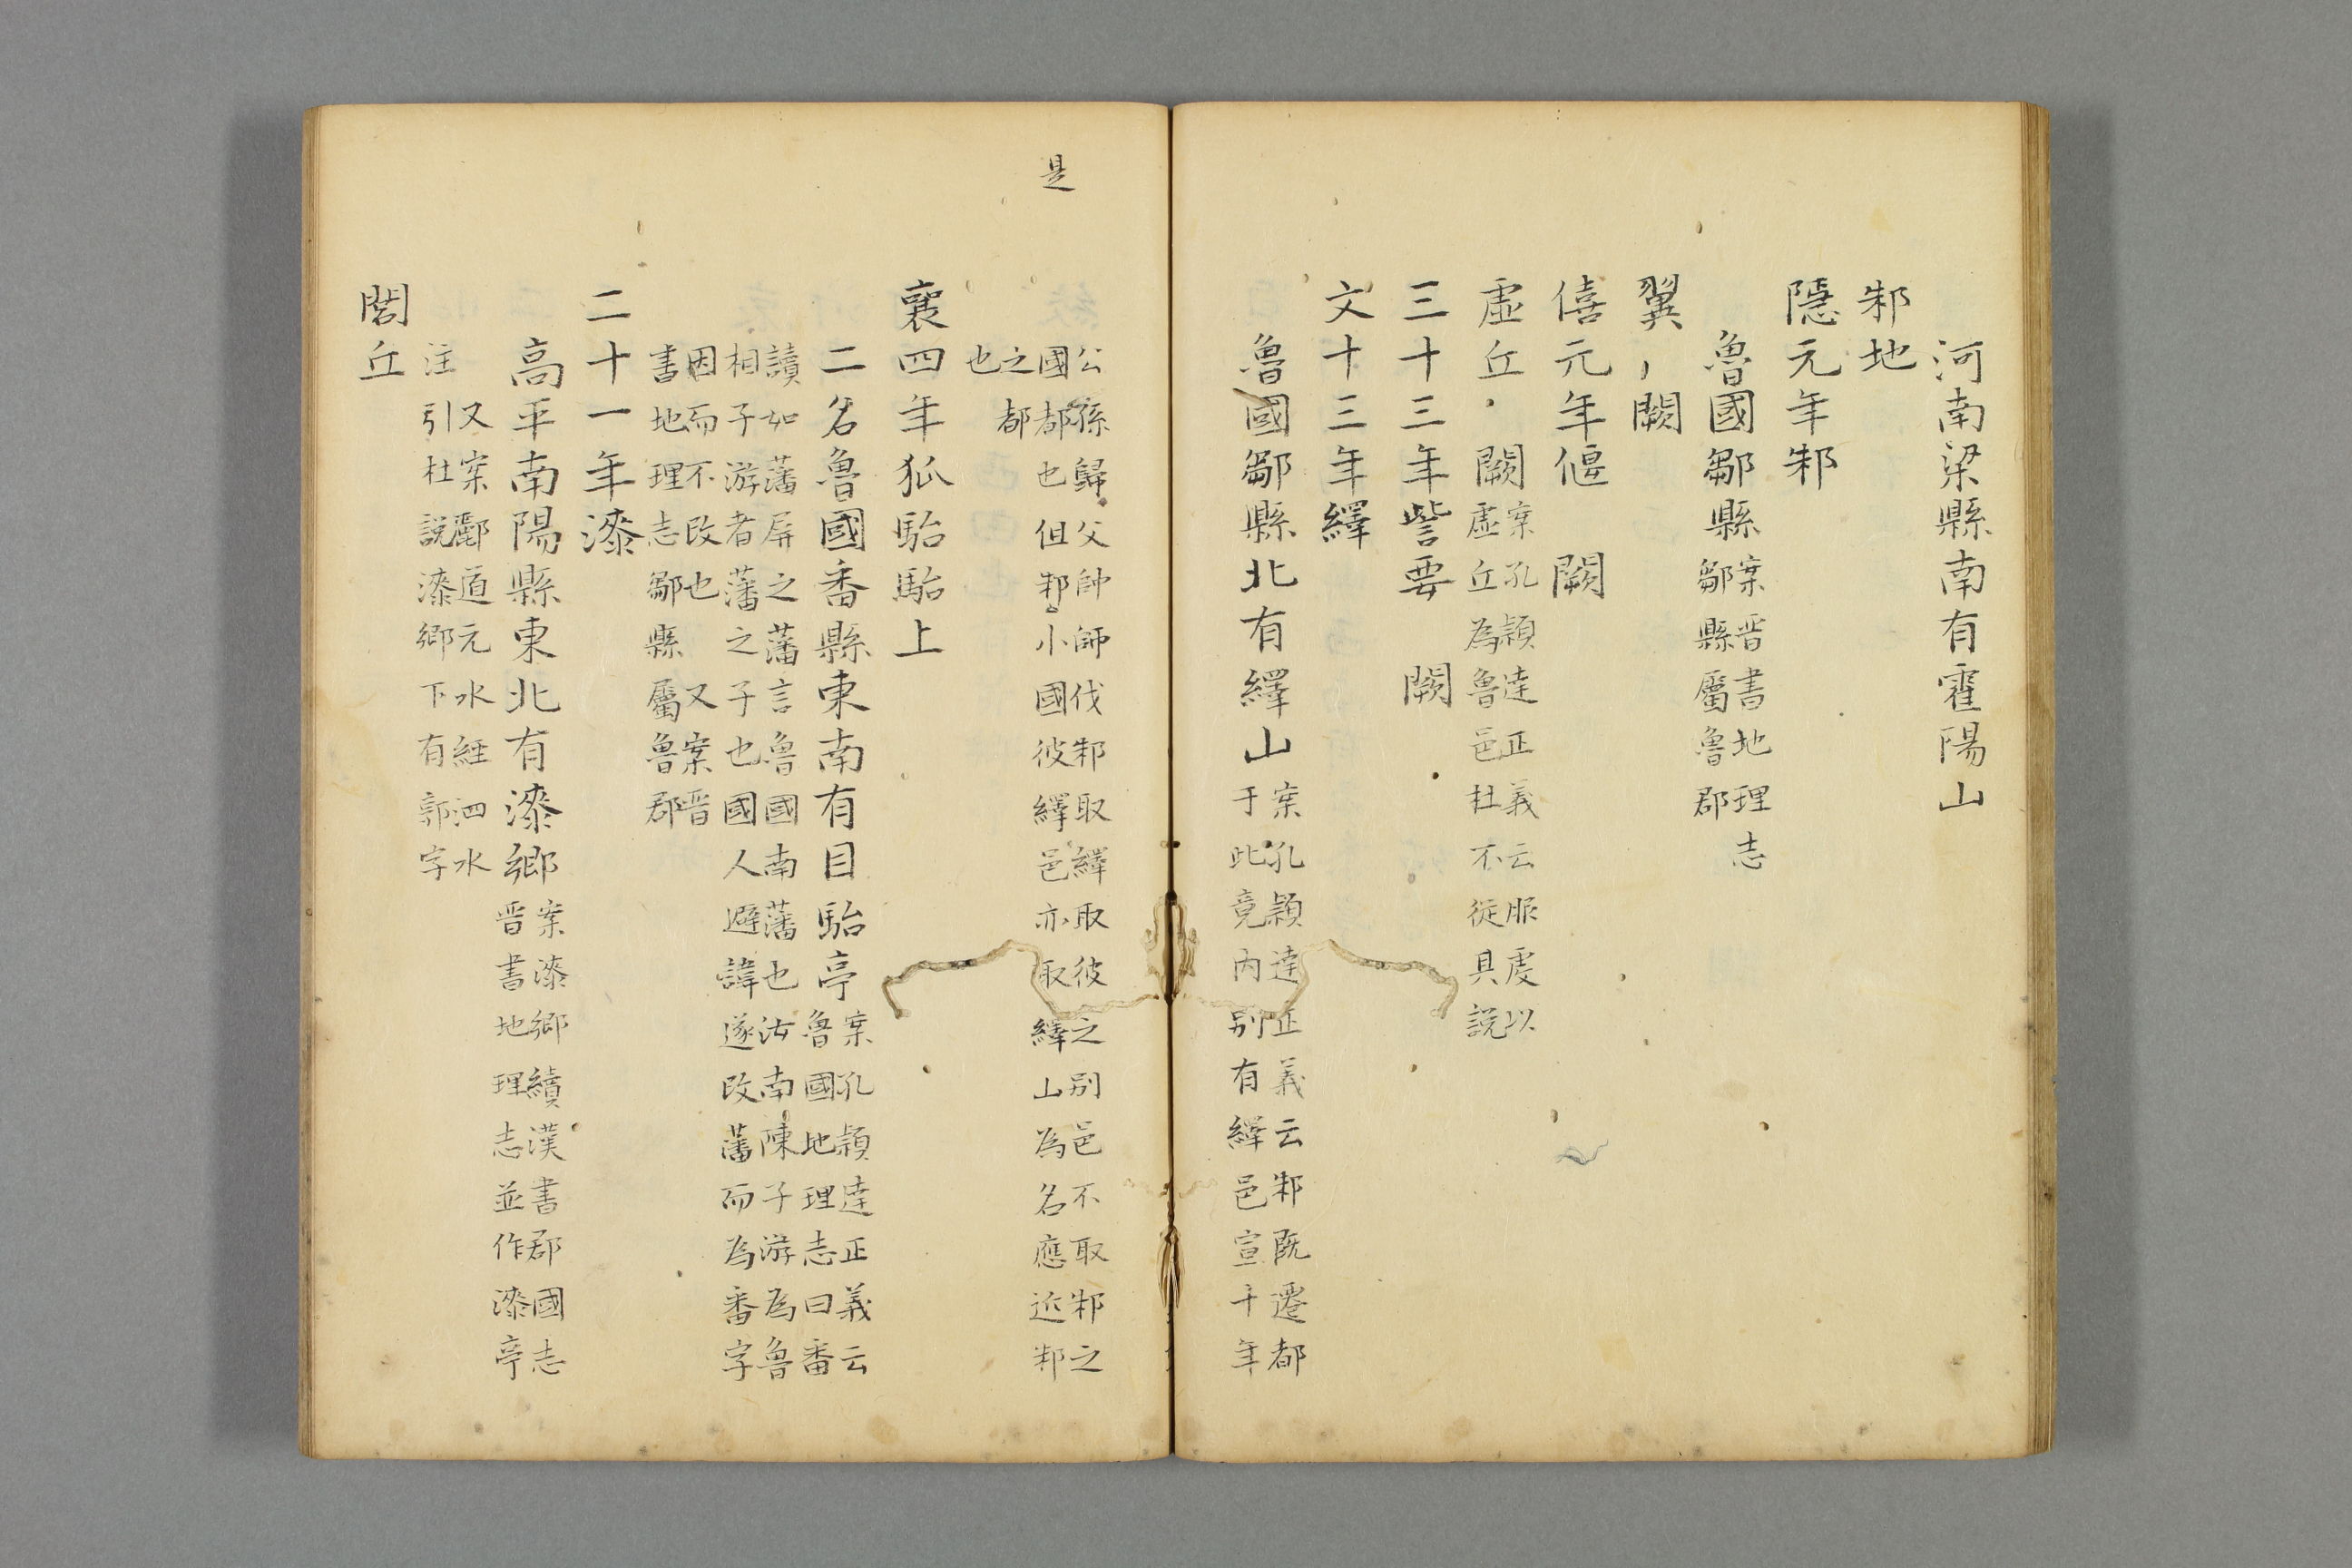 河南梁縣南有霍陽山
邾地
隱元年邾
魯國鄒縣案晋書地理志
鄒縣屬魯郡
翼，闕
僖元年偃　闕
虛丘，闕案孔穎達正義云服虔以
虛丘為魯邑杜不從具說
三十三年訾婁　闕
文十三年繹
魯國鄒縣北有繹山案孔穎達正義云邾既遷都
于此竟內別有繹邑宣十年
公孫歸父帥師伐邾取繹取彼之别邑不取邾之
國都也但邾小國彼繹邑亦取繹山為名應近邾
之都
也
是
襄四年狐駘駘上
二名魯國番縣東南有目駘亭案孔穎達正義云
魯國地理志曰番
讀如藩屏之藩言魯國南藩也汝南陳子游為魯
相子游者藩之子也國人避諱遂改藩而為番字
因而不改也　又案晋
書地理志鄒縣屬魯郡
二十一年漆
高平南陽縣東北有漆鄉案漆鄉續漢書郡國志
晋書地理志並作漆亭
又案酈道元水經泗水
注引杜説漆鄉下有郭字
閭丘